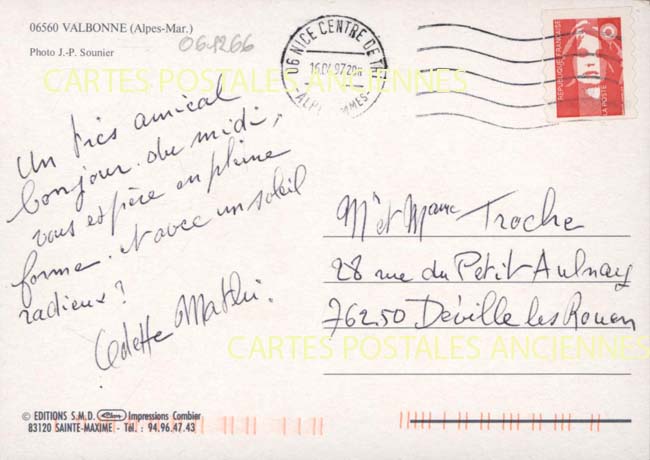 06560 VALBONNE (Alpes-Mar.)
Photo J.-P. Sounier
061266
CARTES POSTALES ANCIENNES
06 NICE CENTRE DE TRI
16 97 20H
ALPES MMES-
REPUBLIQUE FRANÇAISE
LA POSTE
Un très amical
bonjour du midi,
vous espère en pleine
forme. et avec un soleil
radieux ?
Odette
Mr et Mme Troche
28 rue du Petit Aulnay
76250 Déville les Rouen
CARTES POSTALES ANCIENNES
© EDITIONS S.M.D. Impressions Combier
83120 SAINTE-MAXIME - Tél. : 94.96.47.43